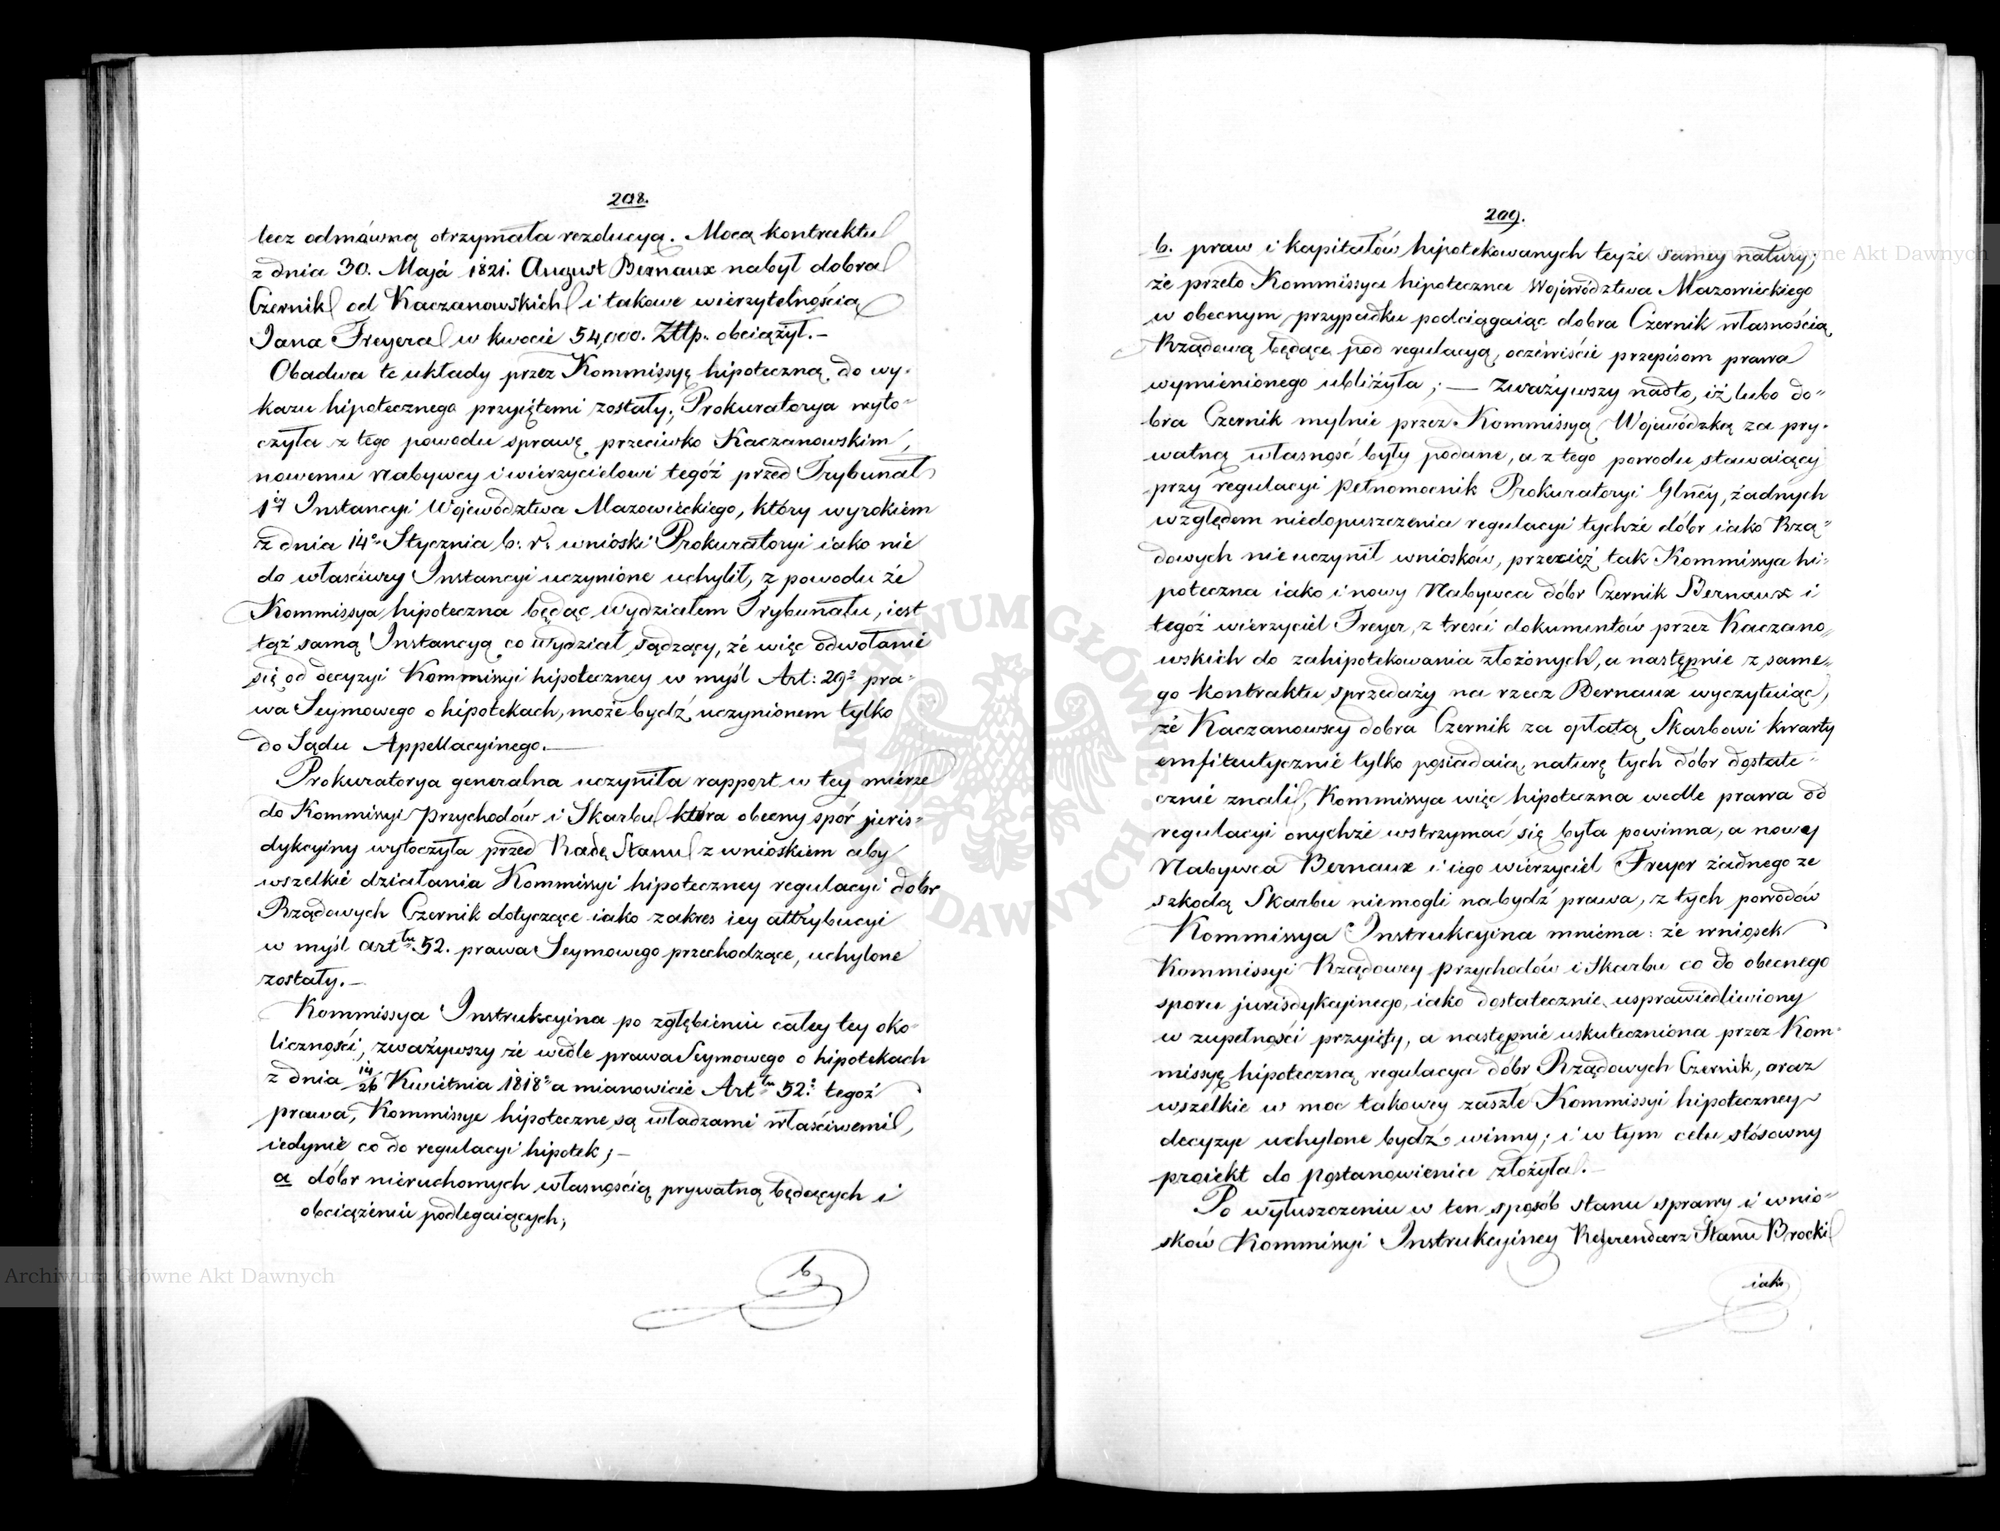 208.
lecz odmówną otrzymała rezolucyą. Mocą kontraktu
z dnia 30. Maja 1821. August Bernaux nabył dobra
Czernik od Kaczanowskich i takowe wierzytelnością
Jana Freyera w kwocie 54,000. Złłp. obciążył.—
Obadwa te układy przez Kommissyę hipoteczną do wy-
kazu hipotecznego przyiętemi zostały; Prokuratorya wyto-
czyła z tego powodu sprawę przeciwko Kaczanowskim,
nowemu Nabywcy i wierzycielowi tegóż przed Trybunał
1ey Instancyi Województwa Mazowieckiego, który wyrokiem
z dnia 14o Stycznia b. r. wnioski Prokuratoryi iako nie
do właściwey Instancyi uczynione uchylił, z powodu że
Kommissya hipoteczna będąc wydziałem Trybunału, iest
tąż samą Instancyą co wydział sądzący, że więc odwołanie
się od decyzyi Kommissyi hipoteczney w myśl Art: 29o pra-
wa Seymowego o hipotekach, może bydź uczynionem tylko
do Sądu Appellacyinego.—
Prokuratorya generalna uczyniła rapport w tey mierze
do Kommissyi Przychodów i Skarbu która obecny spór juris-
dykcyiny wytoczyła przed Radę Stanu z wnioskiem aby
wszelkie działania Kommissyi hipoteczney regulacyi dóbr
Rządowych Czernik dotyczące iako zakres iey attrybucyi
w myśl artłu 52. prawa Seymowego przechodzące, uchylone
zostały.—
Kommissya Instrukcyina po zgłębieniu całey tey oko-
liczności, zważywszy że wedle prawa Seymowego o hipotekach
z dnia 14/26 Kwietnia 1818o a mianowicie Artłu 52o tegoż
prawa, Kommissye hipoteczne są władzami właściwemi,
iedynie co do regulacyi hipotek;—
a dóbr nieruchomych własnością prywatną będących i
obciążeniu podlegaiących;
b
209.
b. praw i kapitałów hipotekowanych teyże samey natury;
że przeto Kommissya hipoteczna Województwa Mazowieckiego
w obecnym przypadku podciągaiąc dobra Czernik własnością
Rządową będące pod regulacyą, oczewiście przepisom prawa
wymienionego ubliżyła;— Zważywszy nadto, iż lubo do-
bra Czernik mylnie przez Kommissyą Wojewódzką za pry-
watną własność były podane, a z tego powodu stawaiący
przy regulacyi Pełnomocnik Prokuratoryi Glney, żadnych
względem niedopuszczenia regulacyi tychże dóbr iako Rzą-
dowych nie uczynił wniosków, przecież tak Kommissya hi-
poteczna iako i nowy Nabywca dóbr Czernik Bernaux i
tegóż wierzyciel Freyer, z treści dokumentów przez Kaczano-
wskich do zahipotekowania złożonych, a następnie z same-
go kontraktu sprzedaży na rzecz Bernaux wyczytuiąc,
że Kaczanowscy dobra Czernik za opłatą Skarbowi kwarty
emfiteutycznie tylko posiadaią, naturę tych dóbr dostate-
cznie znali, Kommissya więc hipoteczna wedle prawa od
regulacyi onychże wstrzymać się była powinna, a nowy
Nabywca Bernaux i iego wierzyciel Freyer żadnego ze
szkodą Skarbu niemogli nabydź prawa, z tych powodów
Kommissya Instrukcyina mniema: że wniosek
Kommissyi Rządowey Przychodów i Skarbu co do obecnego
sporu jurisdykcyinego, iako dostatecznie usprawiedliwiony
w zupełności przyięty, a następnie uskuteczniona przez Kom-
missyę hipoteczną regulacya dóbr Rządowych Czernik, oraz
wszelkie w moc takowey zaszłe Kommissyi hipoteczney
decyzye uchylone bydź winny; i w tym celu stósowny
proiekt do Postanowienia złożyła.—
Po wyłuszczeniu w ten sposób stanu sprawy i wnio-
sków Kommissyi Instrukcyiney Referendarz Stanu Brocki
iako
Archiwum Główne Akt Dawnych
Archiwum Główne Akt Dawnych
ARCHIWUM GŁÓWNE AKT DAWNYCH